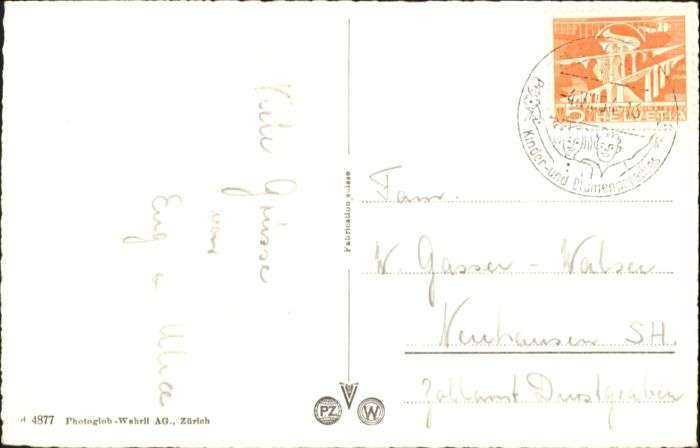 Viele Grüsse
von
Eug u Alice
Fabrication suisse
4877 Photoglob-Wehrli AG., Zürich
PZ
W
5 HELVETIA
Kinder- und Blumen
Fam.
W. Gasser - Walser
Neuhausen SH.
Zollamt Durstgraben